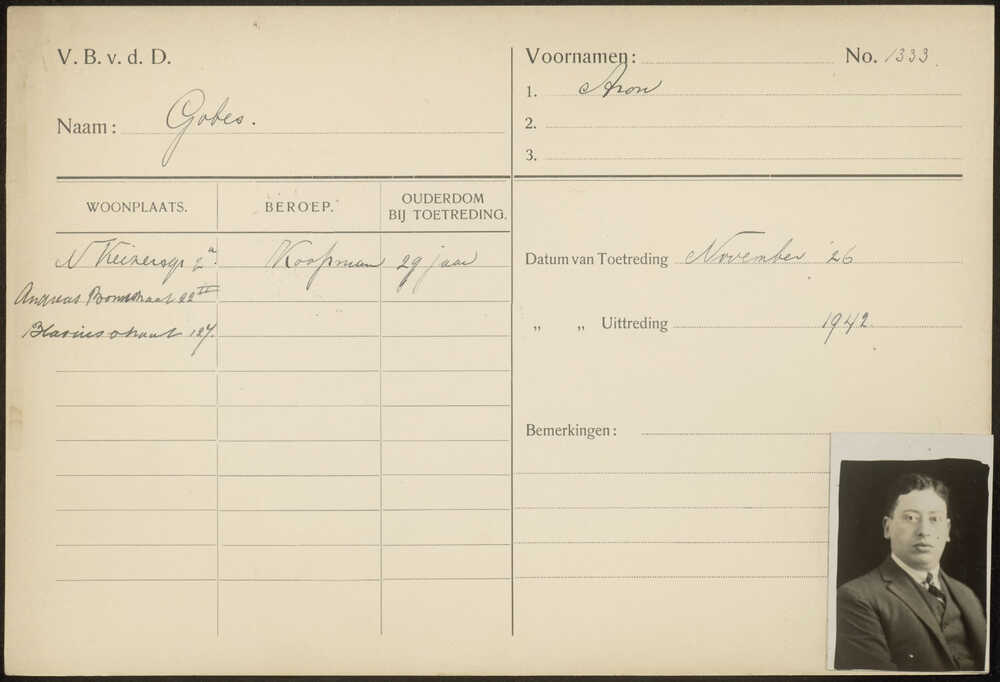 V. B. v. d. D.
Naam: Gobes.
Voornamen: No. 1333
1. Aron
2.
3.
WOONPLAATS. BEROEP. OUDERDOM BIJ TOETREDING.
N Keizersgr 2a. Koopman 29 jaar
Andreas Bonnstraat 22 II
Blasiusstraat 127.
Datum van Toetreding November '26
„ „ Uittreding 1942.
Bemerkingen: